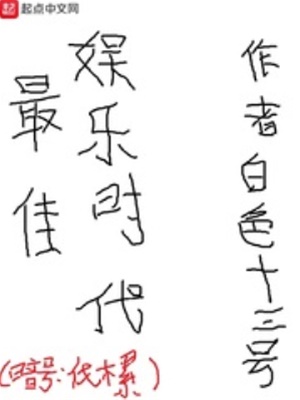 起点中文网
作者白色十三号
娱乐时代
最佳
(暗号:代橰)